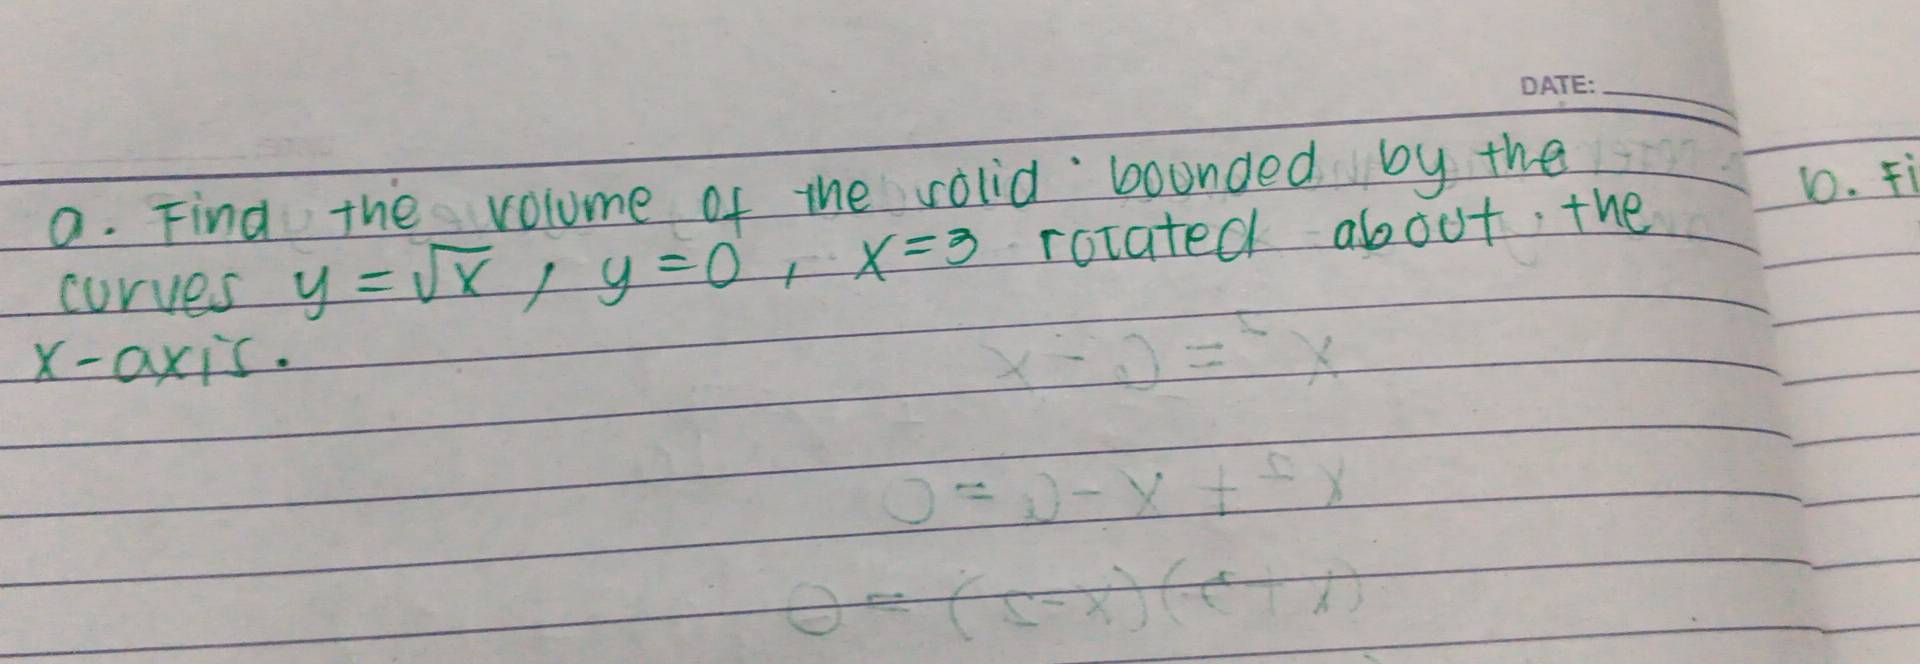 DATE:
a. Find the volume of the solid bounded by the
curves y = √x , y = 0 , x = 3 rotated about the
x-axis.
b. Fi
x² = 6 - x
x² + x - 6 = 0
(x + 3)(x - 2) = 0